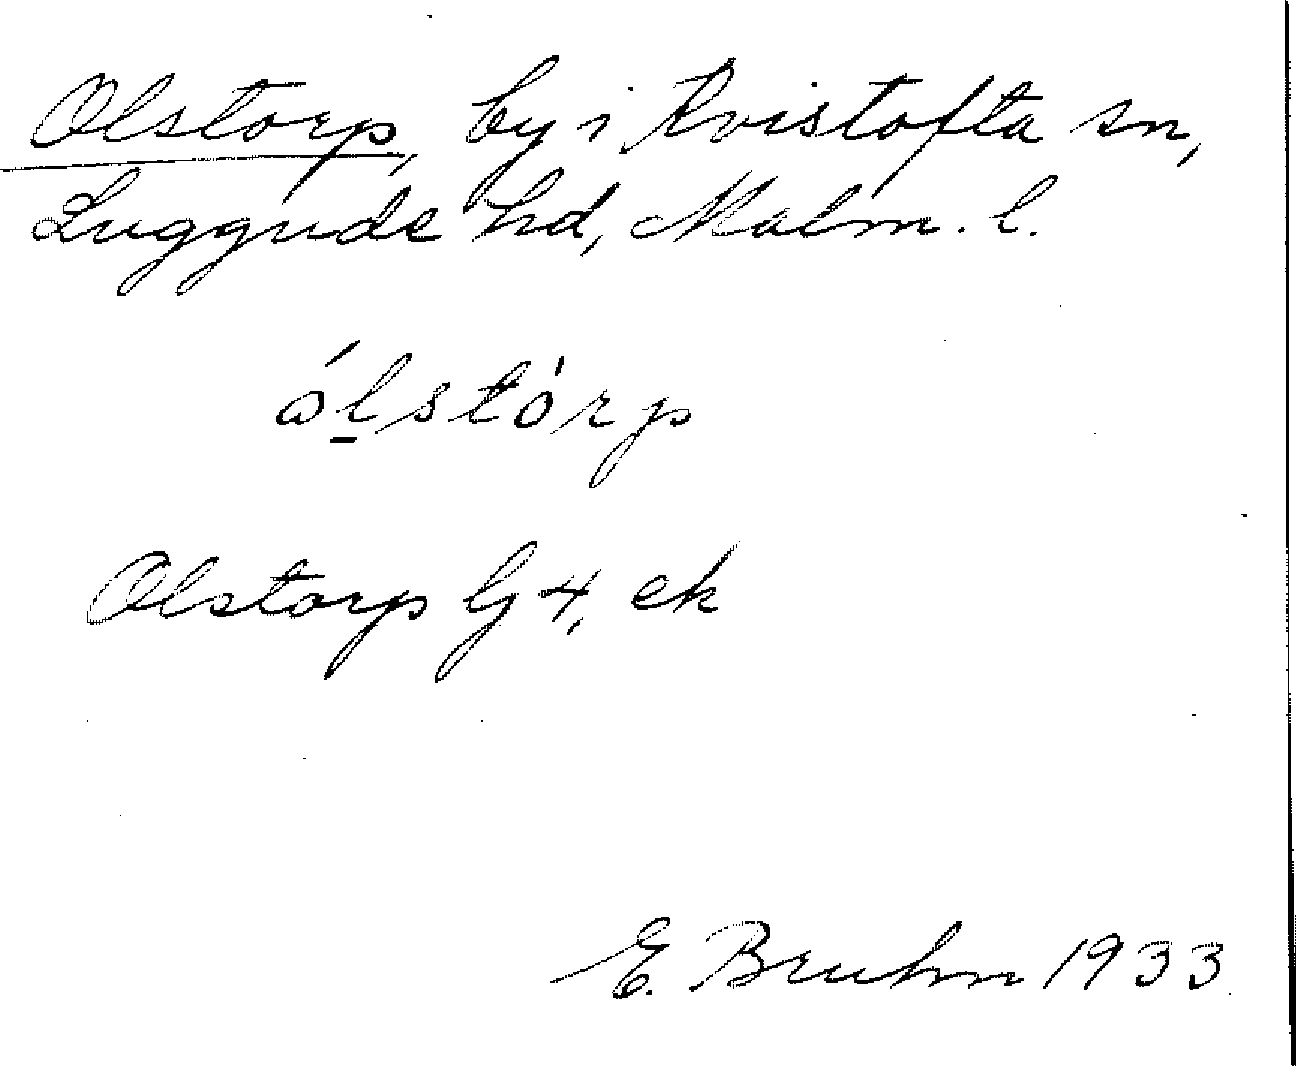 Olstorp, by i Kvistofta sn,
Luggude hd, Malm. l.
ó̀lstò̀rp
Olstorp G 4, ek
E. Bruhn 1933